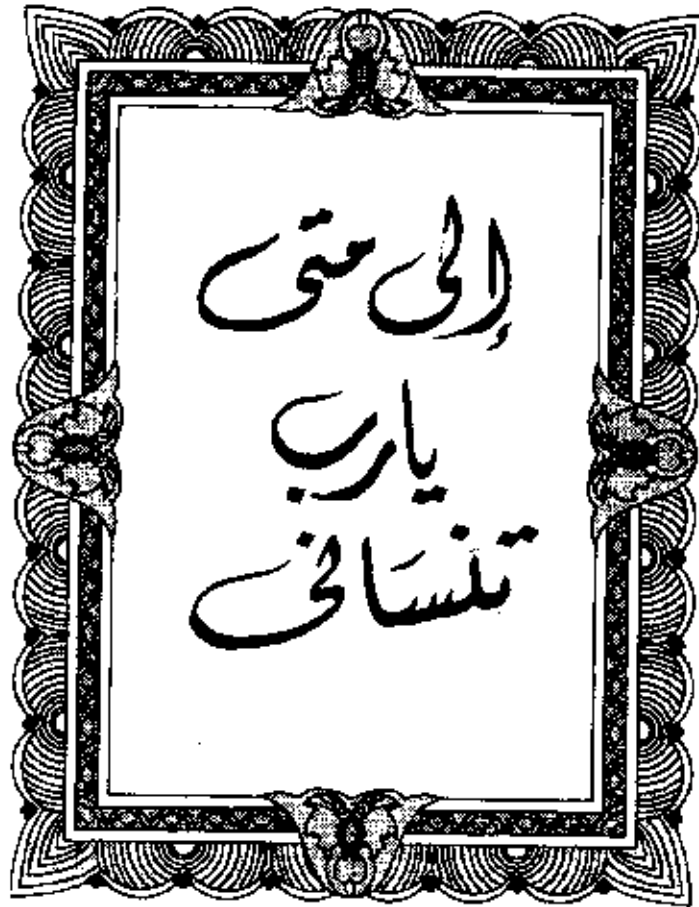 إلى متى
يارب
تنسانى